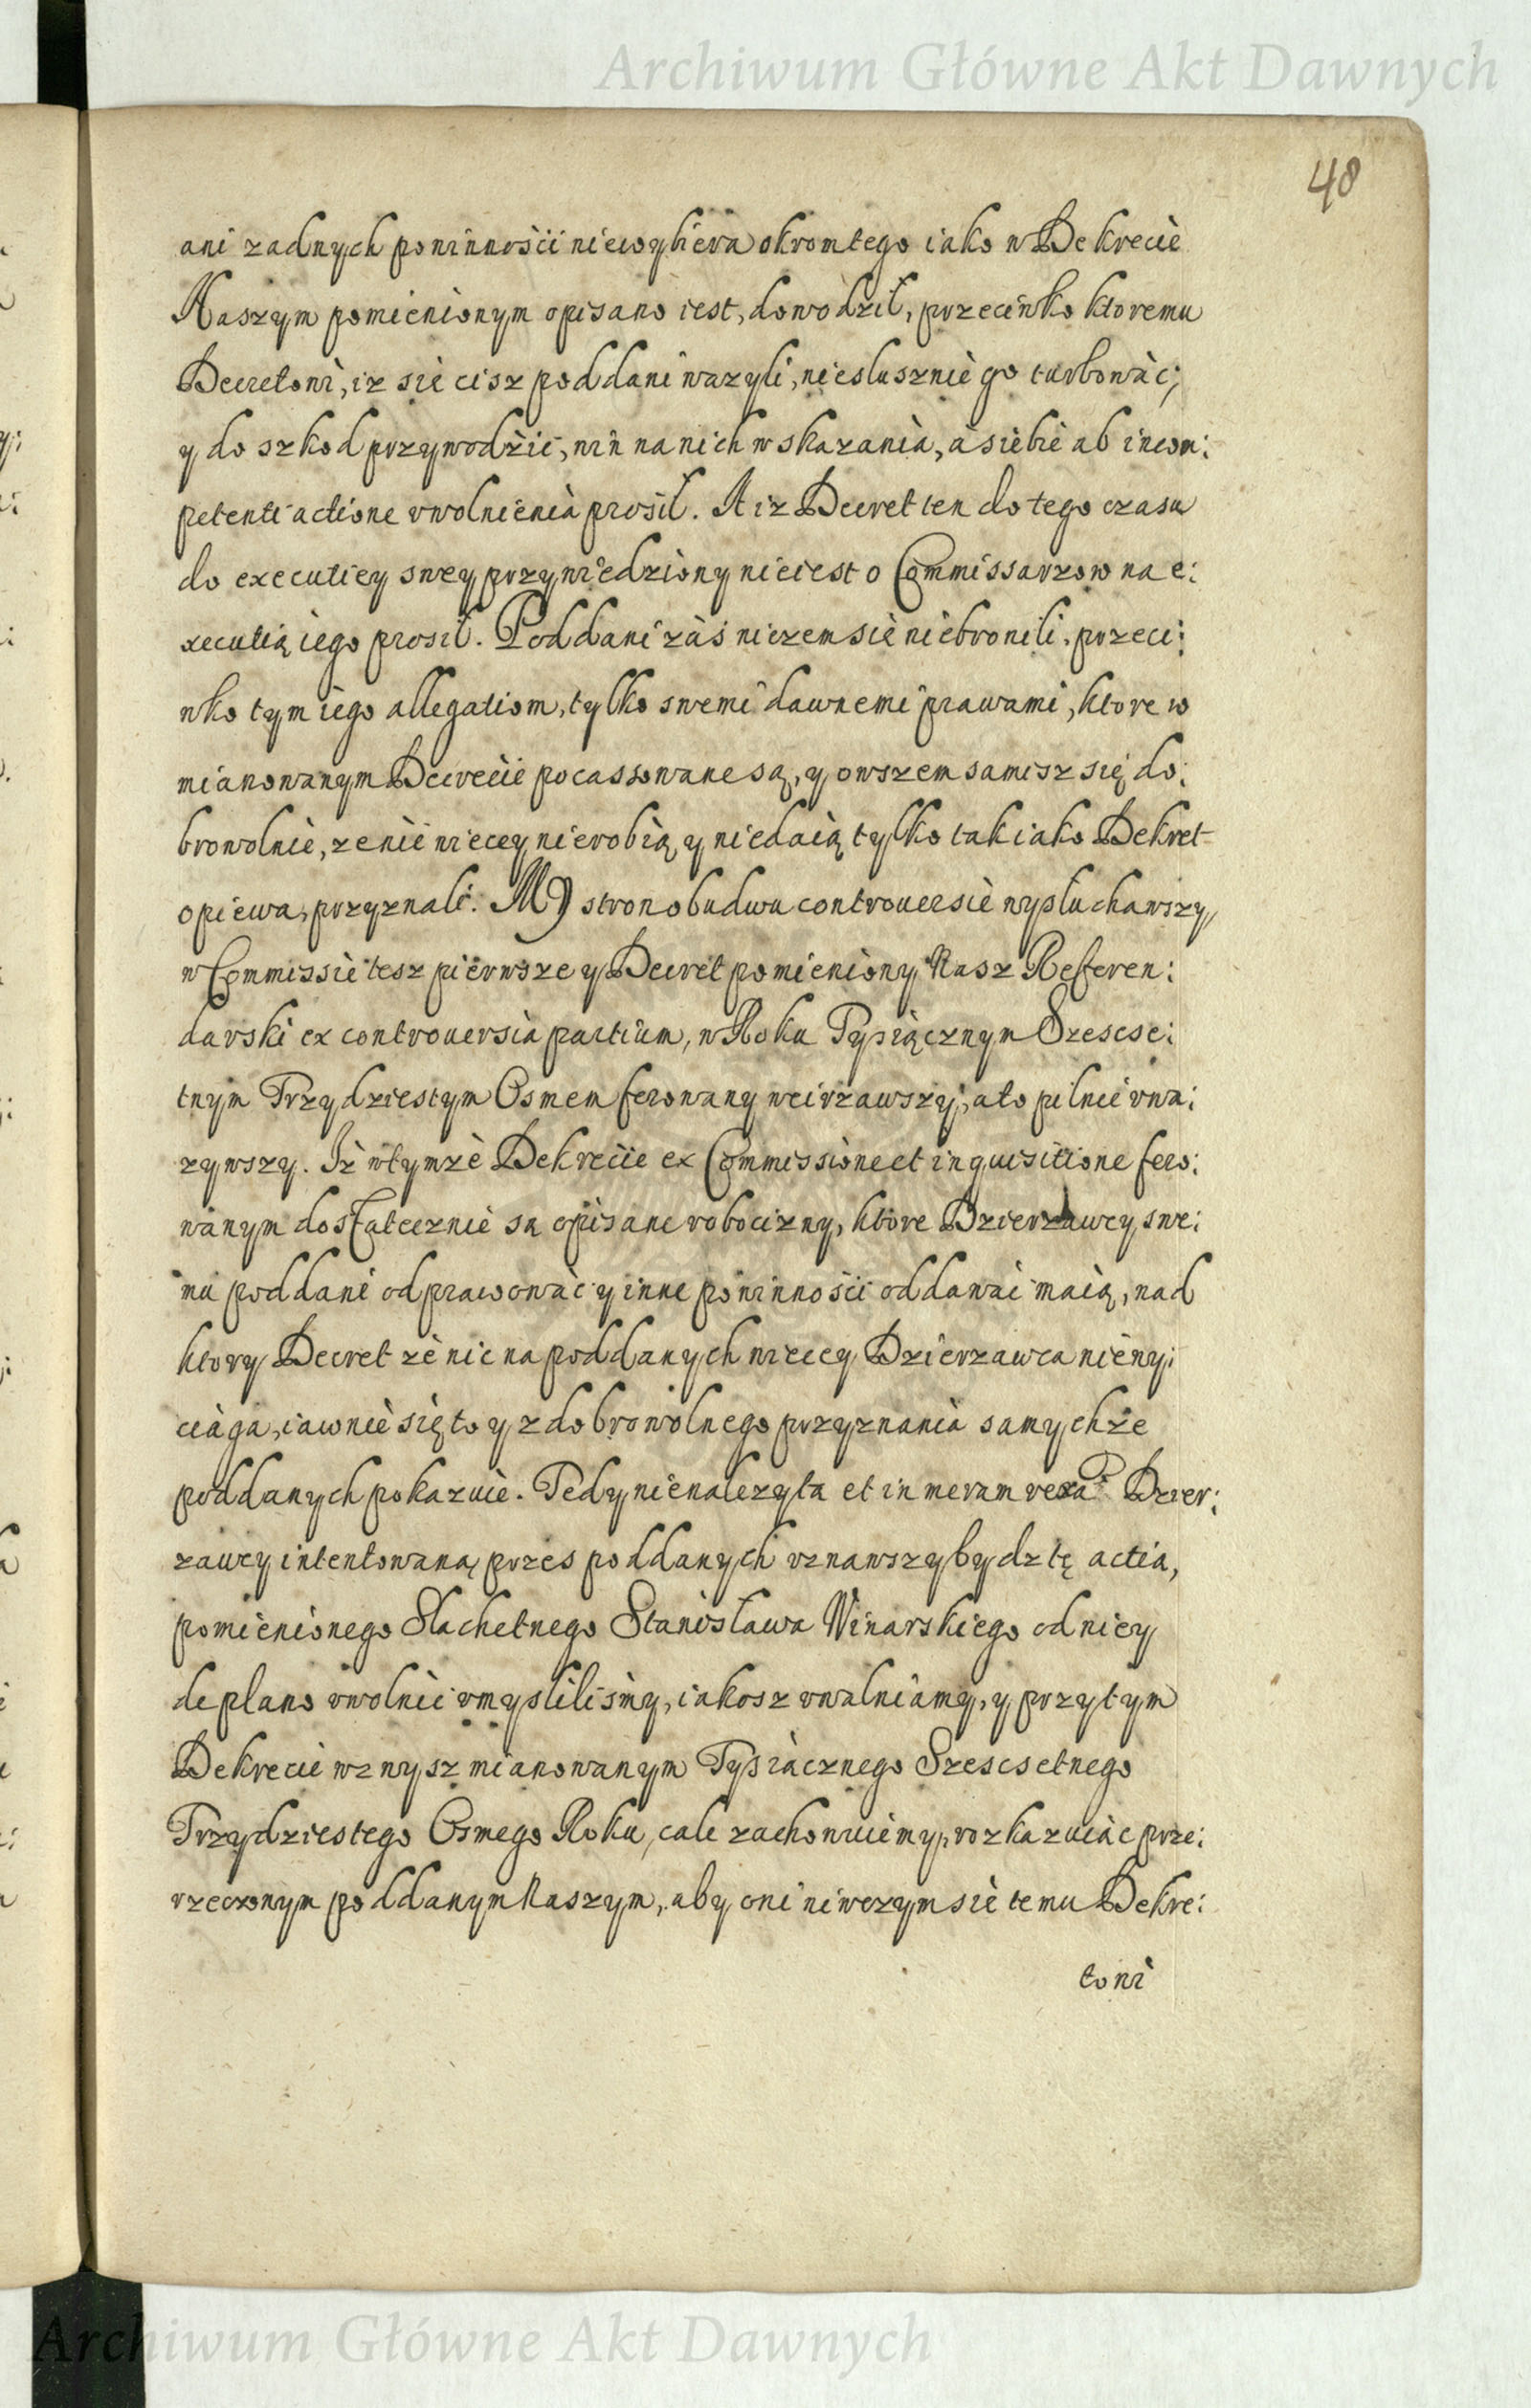 Archiwum Główne Akt Dawnych
48
ani zadnych powinnosci niewybiera okrom tego iako w Dekrecie
Naszym pomienionym opisano iest, dowodził, przeciwko ktoremu
Decretowi, iz sie cisz poddani wazyli, niesluszniè go turbowàc,
y do szkod przywodzic, win na nich wskazania, a siebie ab incom:
petenti actione vwolnienià prosił. A iz Decret ten do tego czasu
do executiey swey przywiedziony nieiest o Commissarzow na e:
xecutią iego prosił. Poddani zàs niczem sie niebronili, przeci:
wko tym iego allegatiom, tylko swemi dawnemi prawami, ktore w
mianowanym Decrecie pocassowane są, y owszem samisz się do:
browolnie, ze nic wiecey nierobią y niedaią tylko tak iako Dekret
opiewa, przyznali. My stron obudwu controuersie wysłuchawszy,
w Commissie tesz pierwsze y Decret pomieniony Nasz Referen:
darski ex controuersia partium, w Roku Tysiącznym Szescse:
tnym Trzydziestym Osmem ferowany weirzawszy, a to pilnie vwa:
zywszy. Iż w tymze Dekrecie ex Commissione et inquisitione fero:
wanym dostatecznie są opisane robocizny, ktore Dzierzawcy swe:
mu poddani odprawowàc y inne powinnosci oddawac maią, nad
ktory Decret ze nic na poddanych wiecey Dzierzawca niewy:
ciàga, iawnie się to y z dobrowolnego przyznania samychże
poddanych pokazuie. Tedy nienalezyta et in meram vexa<sup>m</sup> Dzier:
zawcy intentowaną przes poddanych vznawszy bydz tę actia,
pomienionego Slachetnego Stanisława Winarskiego od niey
de plano vwolnic vmyslilismy, iakosz vwalniamy, y przy tym
Dekrecie wzwysz mianowanym Tysiàcznego Szescsetnego
Trzydziestego Osmego Roku, cale zachowuiemy, rozkazuiàc prze:
rzeczonym poddanym Naszym, aby oni niwczym sie temu Dekre:
towi
Archiwum Główne Akt Dawnych